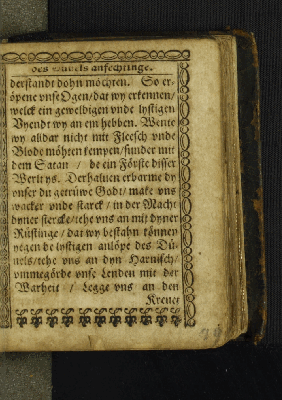 des Düuels anfechtinge.
derstandt dohn möchten. So er-
öpene vnse Ogen/dat wy erkennen/
welck ein geweldigen vnde lystigen
Vyendt wy an em hebben. Wente
wy alldar nicht mit Fleesch vnde
Blode möhten kempen/sunder mit
dem Satan / de ein Förste disser
Werlt ys. Derhaluen erbarme dy
vnser du getrüwe Godt/ make vns
wacker vnde starck / in der Macht
dyner stercke/tehe vns an mit dyner
Rüstinge / dat wy bestahn können
yegen de lystigen anlöpe des Dü-
uels/tehe vns an dyn Harnisch/
vmmegörde vnse Lenden mit der
Warheit / Legge vns an den
Kreuet